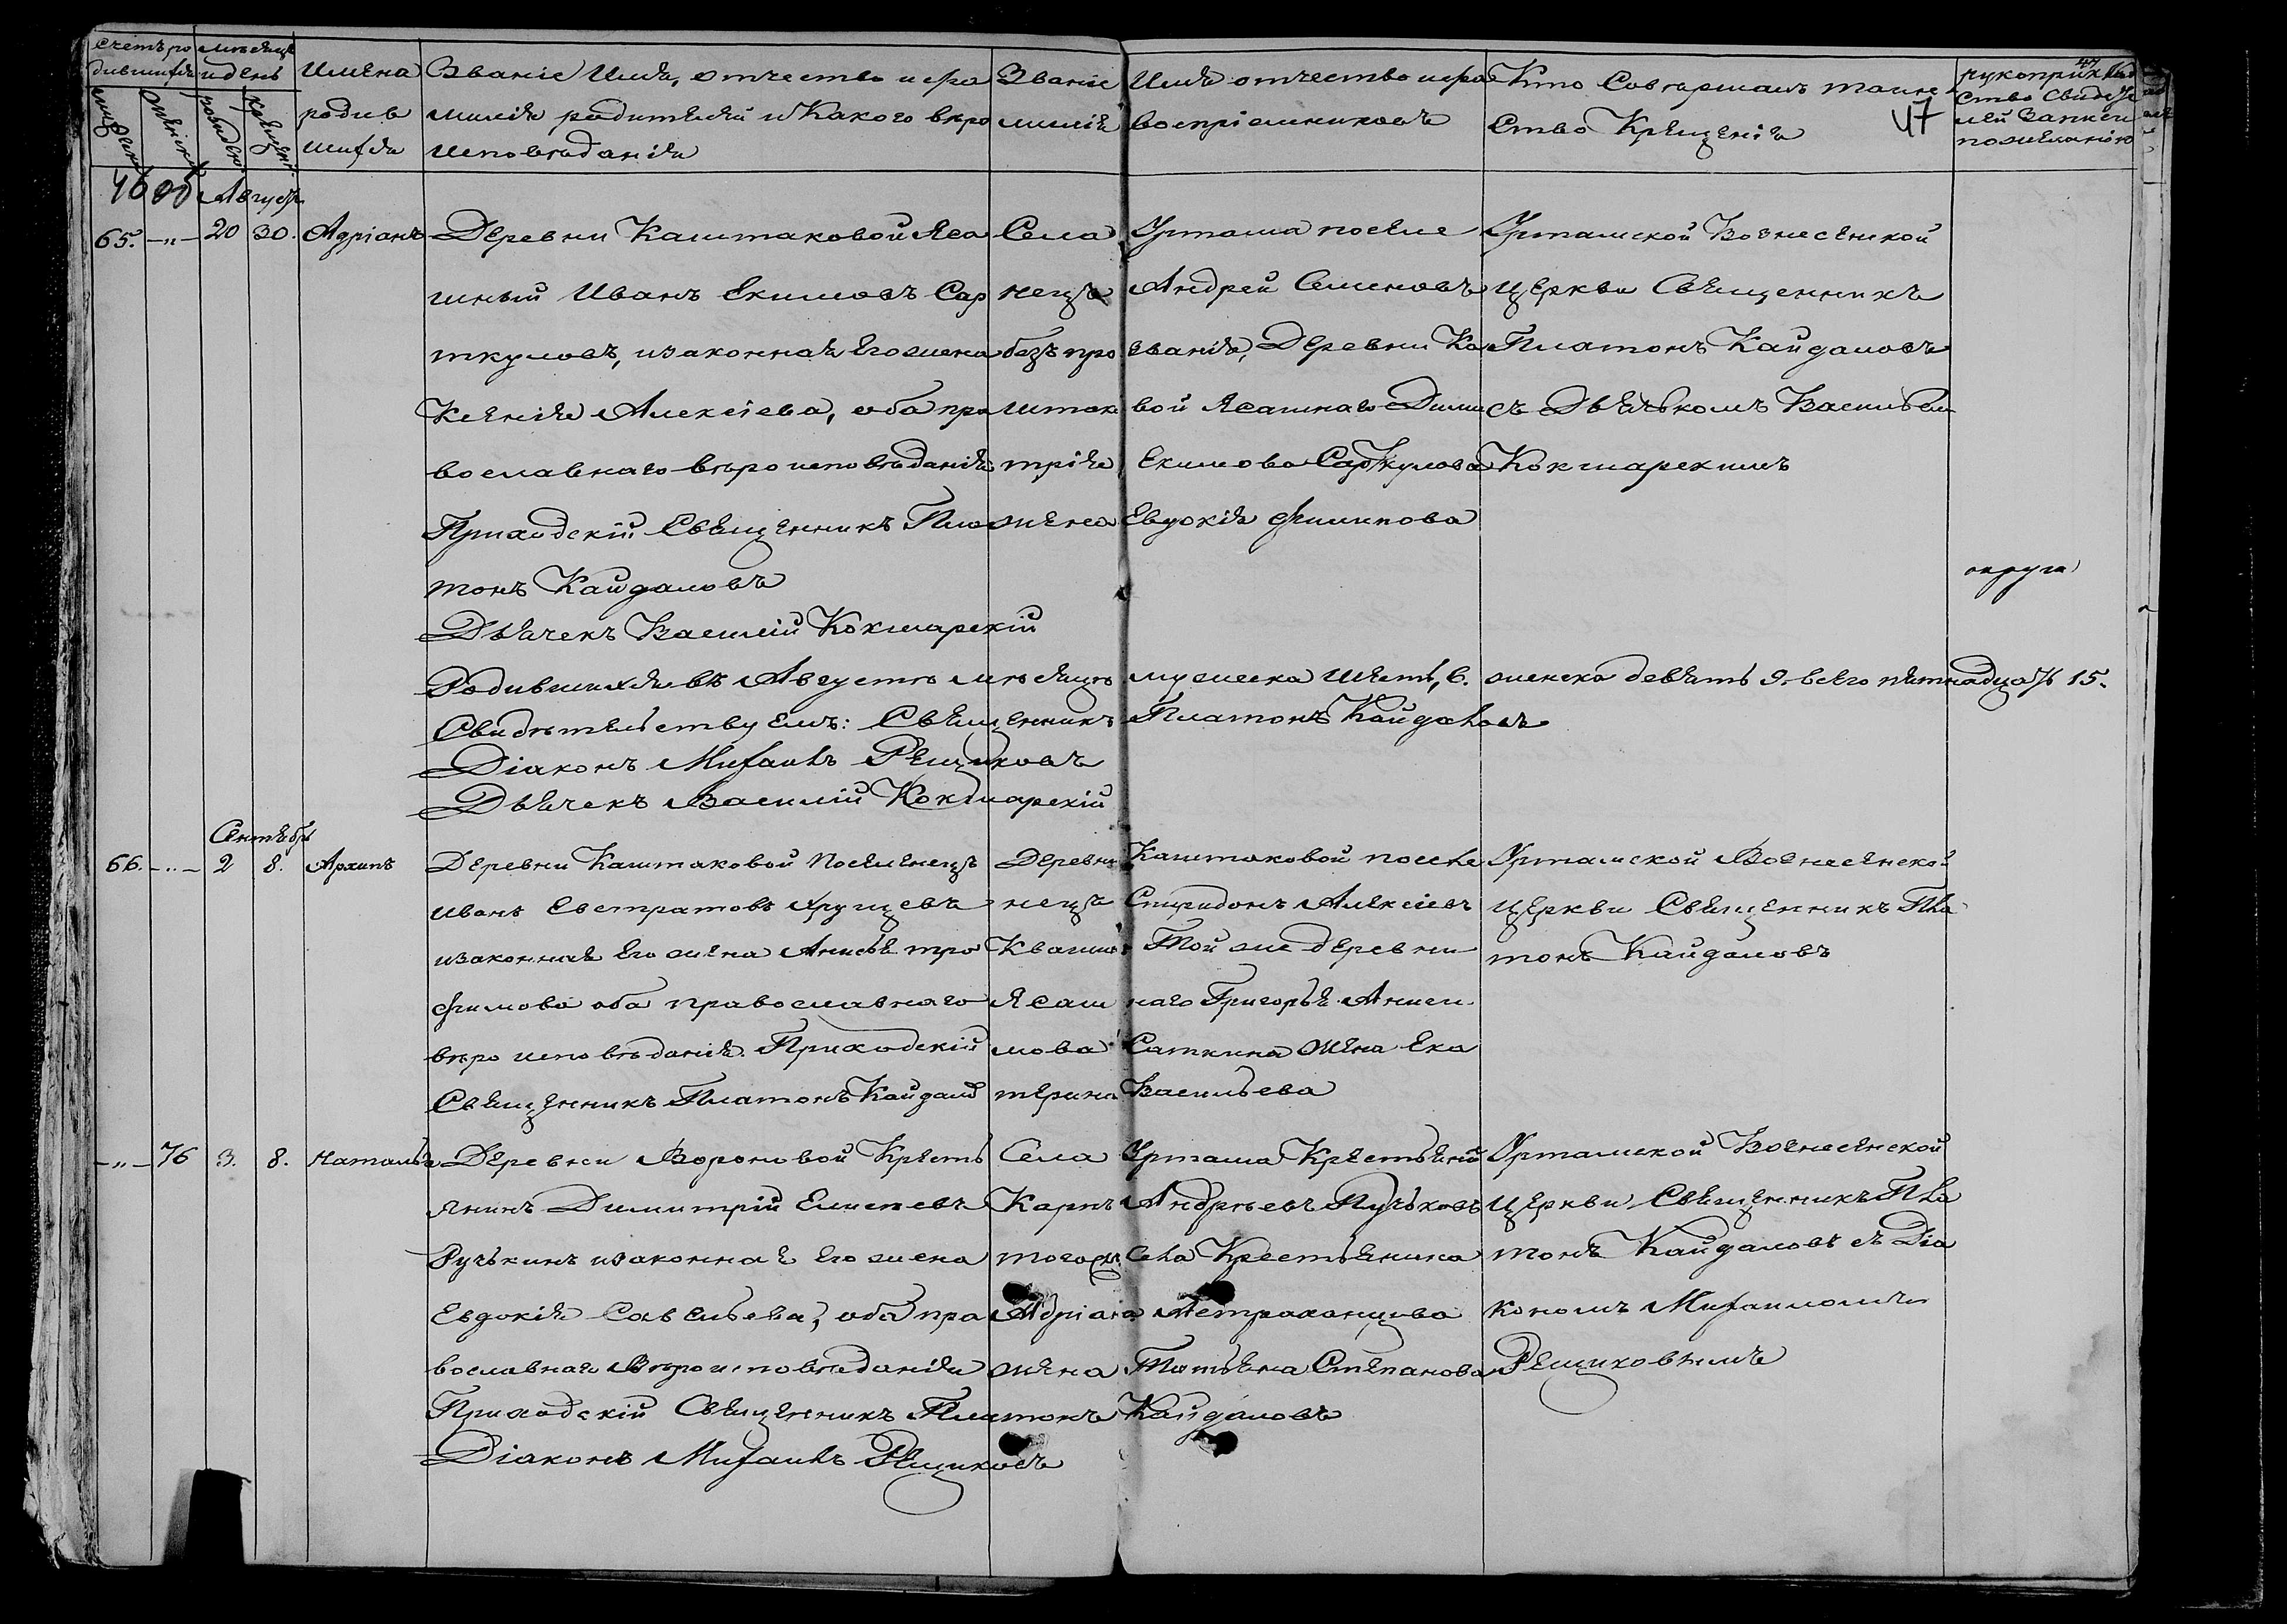 Счетъ ро
дившихся
Мѣсяцъ
и день
Имена
родив
шихся
Званіе Имя, отчество и фа
милія родителей и Какого вѣро
исповѣданія
Званіе Имя отчество и фа
милія воспріемниковъ
Кто Совершалъ таин
Ство Крещенія
47
47
рукоприклад
ство Свидѣте
лей Записи
по желанію
Августъ
65. —"— 20 30. Адріанъ Деревни Каштаковой Яса
шный Иванъ Екимовъ Сар
ткуловъ, изаконная его жена
Ксенія Алексіева, оба пра
вославнаго вѣроисповѣданія
Приходскій Священникъ Пла
тонъ Кайдаловъ
Дьячекъ Василій Кокшарскій
Села Уртама поселе
нецъ Андрей Семеновъ
безъ про званія, Деревни Ка
штако вой Ясашнаго Дими
трія Екимова Сарткулова
жена Евдокія Филипова
Уртамской Вознесенской
Церкви Священникъ
Платонъ Кайдаловъ
съ Дьячькомъ Васильем
Кокшарскимъ
округа
Родившихся въ Августѣ мѣсяцѣ мужеска шесть, 6. женска девять 9. всего пятнадцать 15.
Свидѣтельствуемъ: Священникъ Платонъ Кайдаловъ
Діаконъ Михаилъ Рещиковъ
Дьячекъ Василій Кокшарскій
Сентябрь
66. —"— 2 8. Архипъ Деревни Каштаковой Поселенецъ
Иванъ Евстратовъ Хрущевъ
изаконная его жена Анисья тро
фимова оба православнаго
вѣроисповѣданія. Приходскій
Священникъ Платонъ Кайдалов
Деревни Каштаковой поселе
нецъ Спиридонъ Алексіевъ
Той же деревни
Ясаш наго Григорья Аниси
мова Саткина жена Ека
терина Васильева
Уртамской Вознесенской
Церкви Священникъ Пла
тонъ Кайдаловъ
—"— 76 3. 8. Наталья Деревни Вороновой Кресть
янинъ Димитрій Елисеевъ
Ручькинъ изаконная его жена
Евдокія Савельева, оба пра
вославнаго Вѣроисповѣданія
Села Уртама Крестьянин
Карпъ Андрѣевъ Пучьковъ
того же Села Крестьянина
Адріана Астраханцова
жена Татьяна Степанова
Уртамской Вознесенской
Церкви Священникъ Пла
тонъ Кайдаловъ съ Діа
кономъ Михаиломъ
Рещиковымъ
Приходскій Священникъ Платонъ Кайдаловъ
Діаконъ Михаилъ Рещиковъ